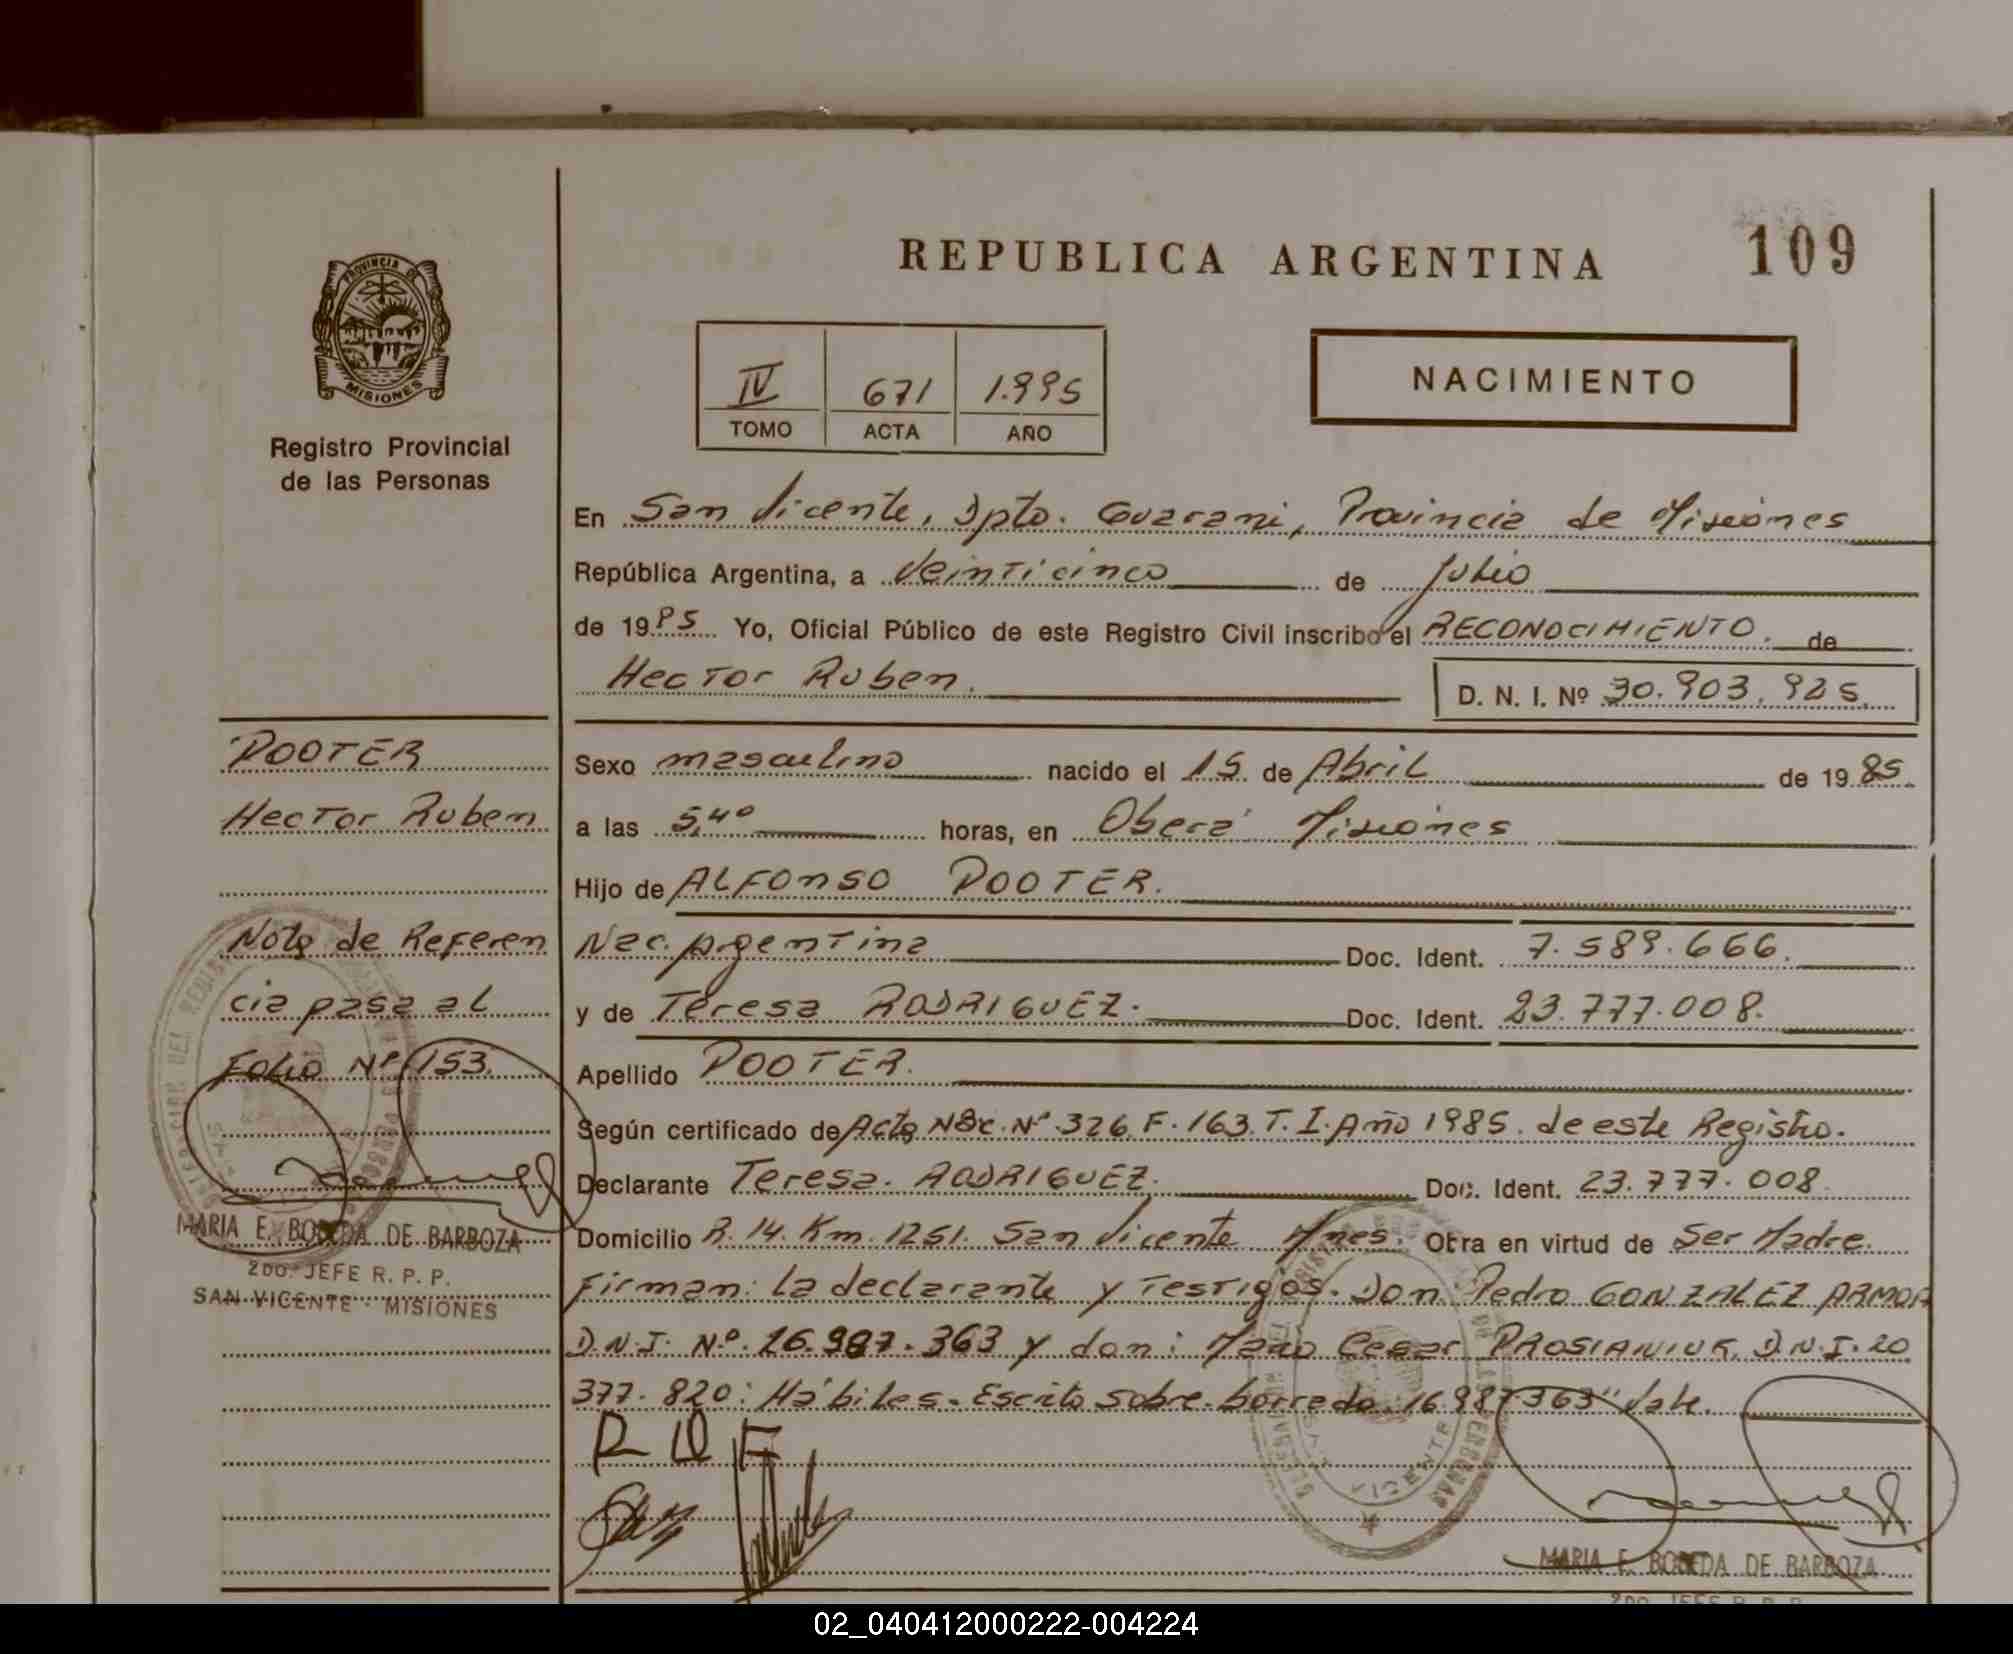 REPUBLICA ARGENTINA
109
PROVINCIA DE
MISIONES
Registro Provincial
de las Personas
IV 671 1.995
TOMO ACTA AÑO
NACIMIENTO
En San Vicente, Dpto. Guarani, Provincia de Misiones
República Argentina, a Veinticinco de Julio
de 1995 Yo, Oficial Público de este Registro Civil inscribo el RECONOCIMIENTO. de
Hector Ruben.
D. N. I. Nº 30.903.925.
Sexo masculino nacido el 15. de Abril de 19 85.
a las 5,40 horas, en Oberá Misiones
Hijo de ALFONSO DOOTER.
Nac. Argentina Doc. Ident. 7.589.666.
y de Teresa RODRIGUEZ. Doc. Ident. 23.777.008.
Apellido DOOTER.
Según certificado de Acta Nac. Nº 326. F. 163. T. I. Año 1985. de este Registro.
Declarante Teresa. RODRIGUEZ. Doc. Ident. 23.777.008.
Domicilio R. 14. Km. 1251. San Vicente Mnes. Obra en virtud de Ser Madre.
Firman: la declarante y Testigos. Don Pedro GONZALEZ ARMOA
D.N.I. Nº. 16.987.363 y don: Mario Cesar PROSIANIUK, D.N.I. 20
377.820: Hábiles. Escrito sobre borrado. 16987363" Vale.
DOOTER
Hector Ruben
Nota de Referen
cia pasa al
Folio Nº 153.
MARIA E. BOBEDA DE BARBOZA
2DO. JEFE R. P. P.
SAN VICENTE - MISIONES
VICENTE
MARIA E. BOBEDA DE BARBOZA
2DO. JEFE R. P. P.
02_040412000222-004224